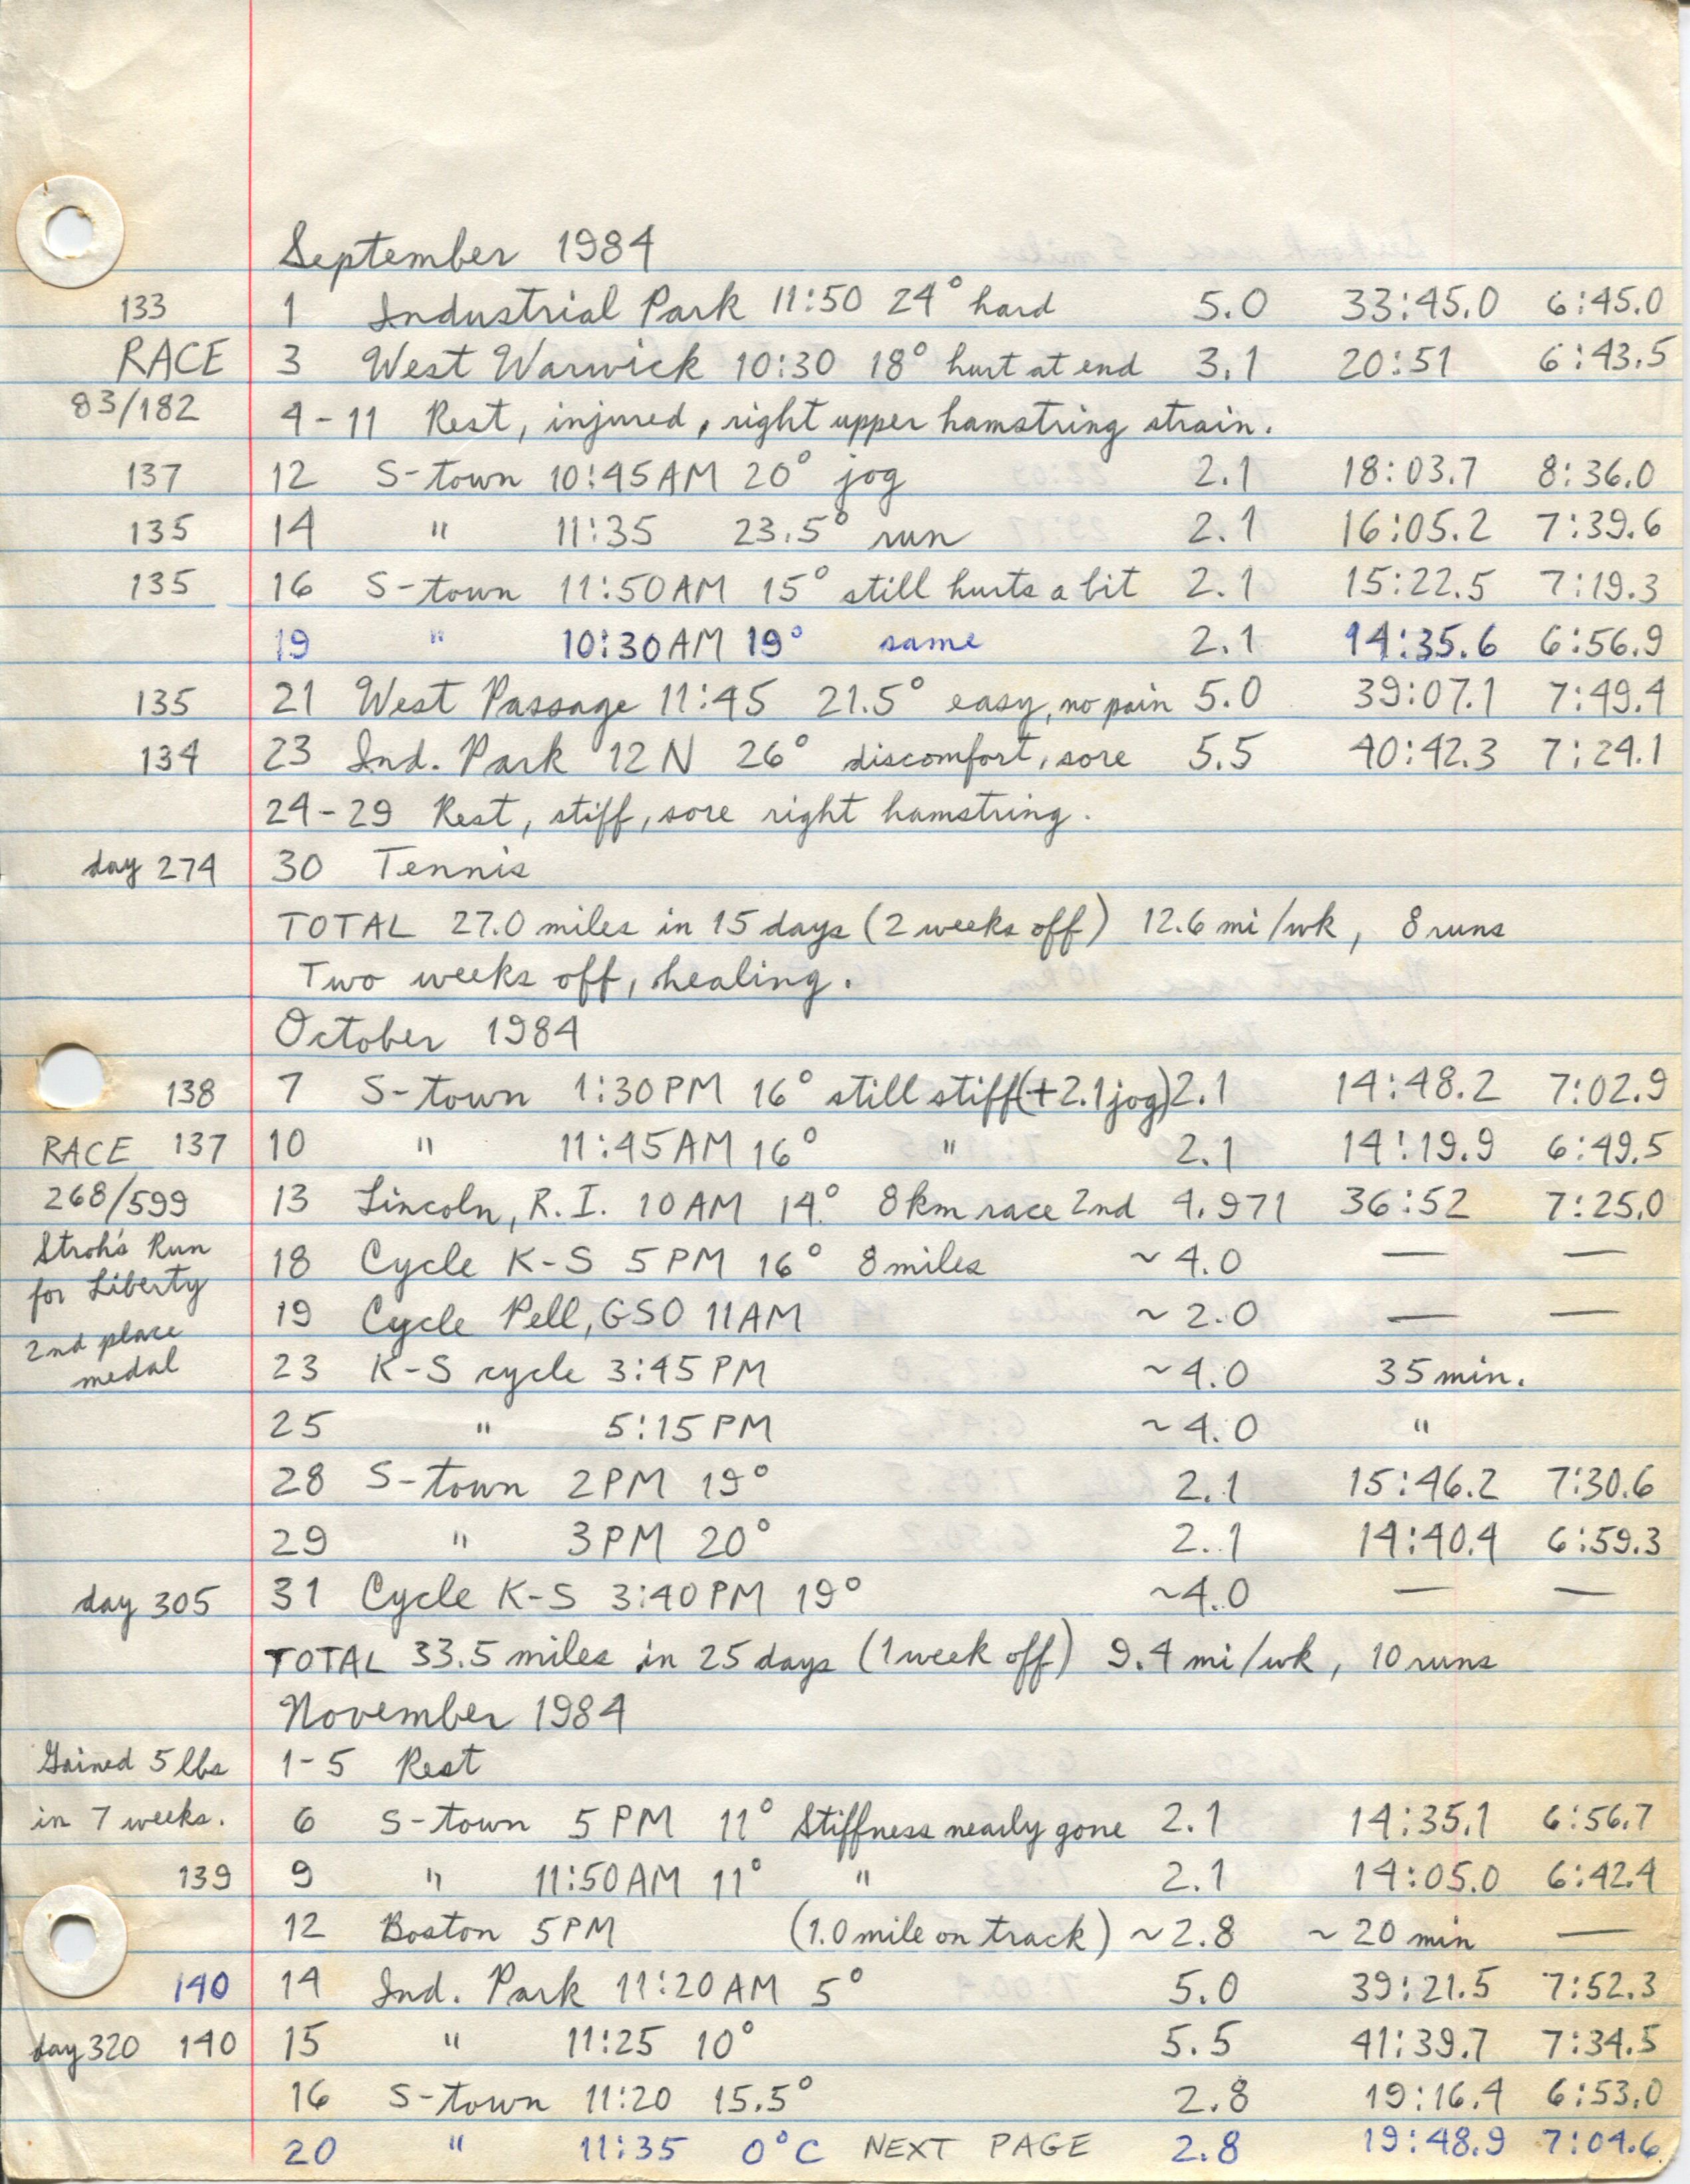 September 1984
133 1 Industrial Park 11:50 24° hard 5.0 33:45.0 6:45.0
RACE 3 West Warwick 10:30 18° hurt at end 3.1 20:51 6:43.5
83/182 4-11 Rest, injured, right upper hamstring strain.
137 12 S-town 10:45AM 20° jog 2.1 18:03.7 8:36.0
135 14 " 11:35 23.5° run 2.1 16:05.2 7:39.6
135 16 S-town 11:50AM 15° still hurts a bit 2.1 15:22.5 7:19.3
19 " 10:30AM 19° same 2.1 14:35.6 6:56.9
135 21 West Passage 11:45 21.5° easy, no pain 5.0 39:07.1 7:49.4
134 23 Ind. Park 12N 26° discomfort, sore 5.5 40:42.3 7:24.1
24-29 Rest, stiff, sore right hamstring.
day 274 30 Tennis
TOTAL 27.0 miles in 15 days (2 weeks off) 12.6 mi/wk, 8 runs
Two weeks off, healing.
October 1984
138 7 S-town 1:30PM 16° still stiff (+2.1 jog) 2.1 14:48.2 7:02.9
RACE 137 10 " 11:45AM 16° " 2.1 14:19.9 6:49.5
268/599 13 Lincoln, R.I. 10AM 14° 8km race 2nd 4.971 36:52 7:25.0
Stroh's Run 18 Cycle K-S 5PM 16° 8 miles ~4.0 — —
for Liberty 19 Cycle Pell, GSO 11AM ~2.0 — —
2nd place
medal 23 K-S cycle 3:45PM ~4.0 35 min.
25 " 5:15PM ~4.0 "
28 S-town 2PM 19° 2.1 15:46.2 7:30.6
29 " 3PM 20° 2.1 14:40.4 6:59.3
day 305 31 Cycle K-S 3:40PM 19° ~4.0 — —
TOTAL 33.5 miles in 25 days (1 week off) 9.4 mi/wk, 10 runs
November 1984
Gained 5 lbs 1-5 Rest
in 7 weeks. 6 S-town 5PM 11° Stiffness nearly gone 2.1 14:35.1 6:56.7
139 9 " 11:50AM 11° " 2.1 14:05.0 6:42.4
12 Boston 5PM (1.0 mile on track) ~2.8 ~20 min —
140 14 Ind. Park 11:20AM 5° 5.0 39:21.5 7:52.3
day 320 140 15 " 11:25 10° 5.5 41:39.7 7:34.5
16 S-town 11:20 15.5° 2.8 19:16.4 6:53.0
20 " 11:35 0°C NEXT PAGE 2.8 19:48.9 7:04.6